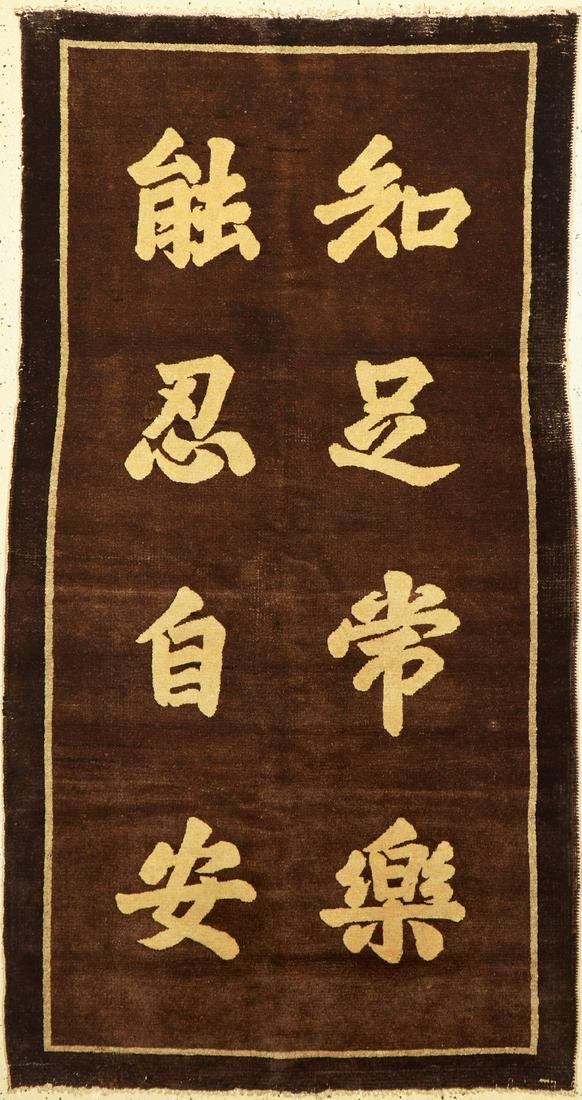 知足常樂
能忍自安